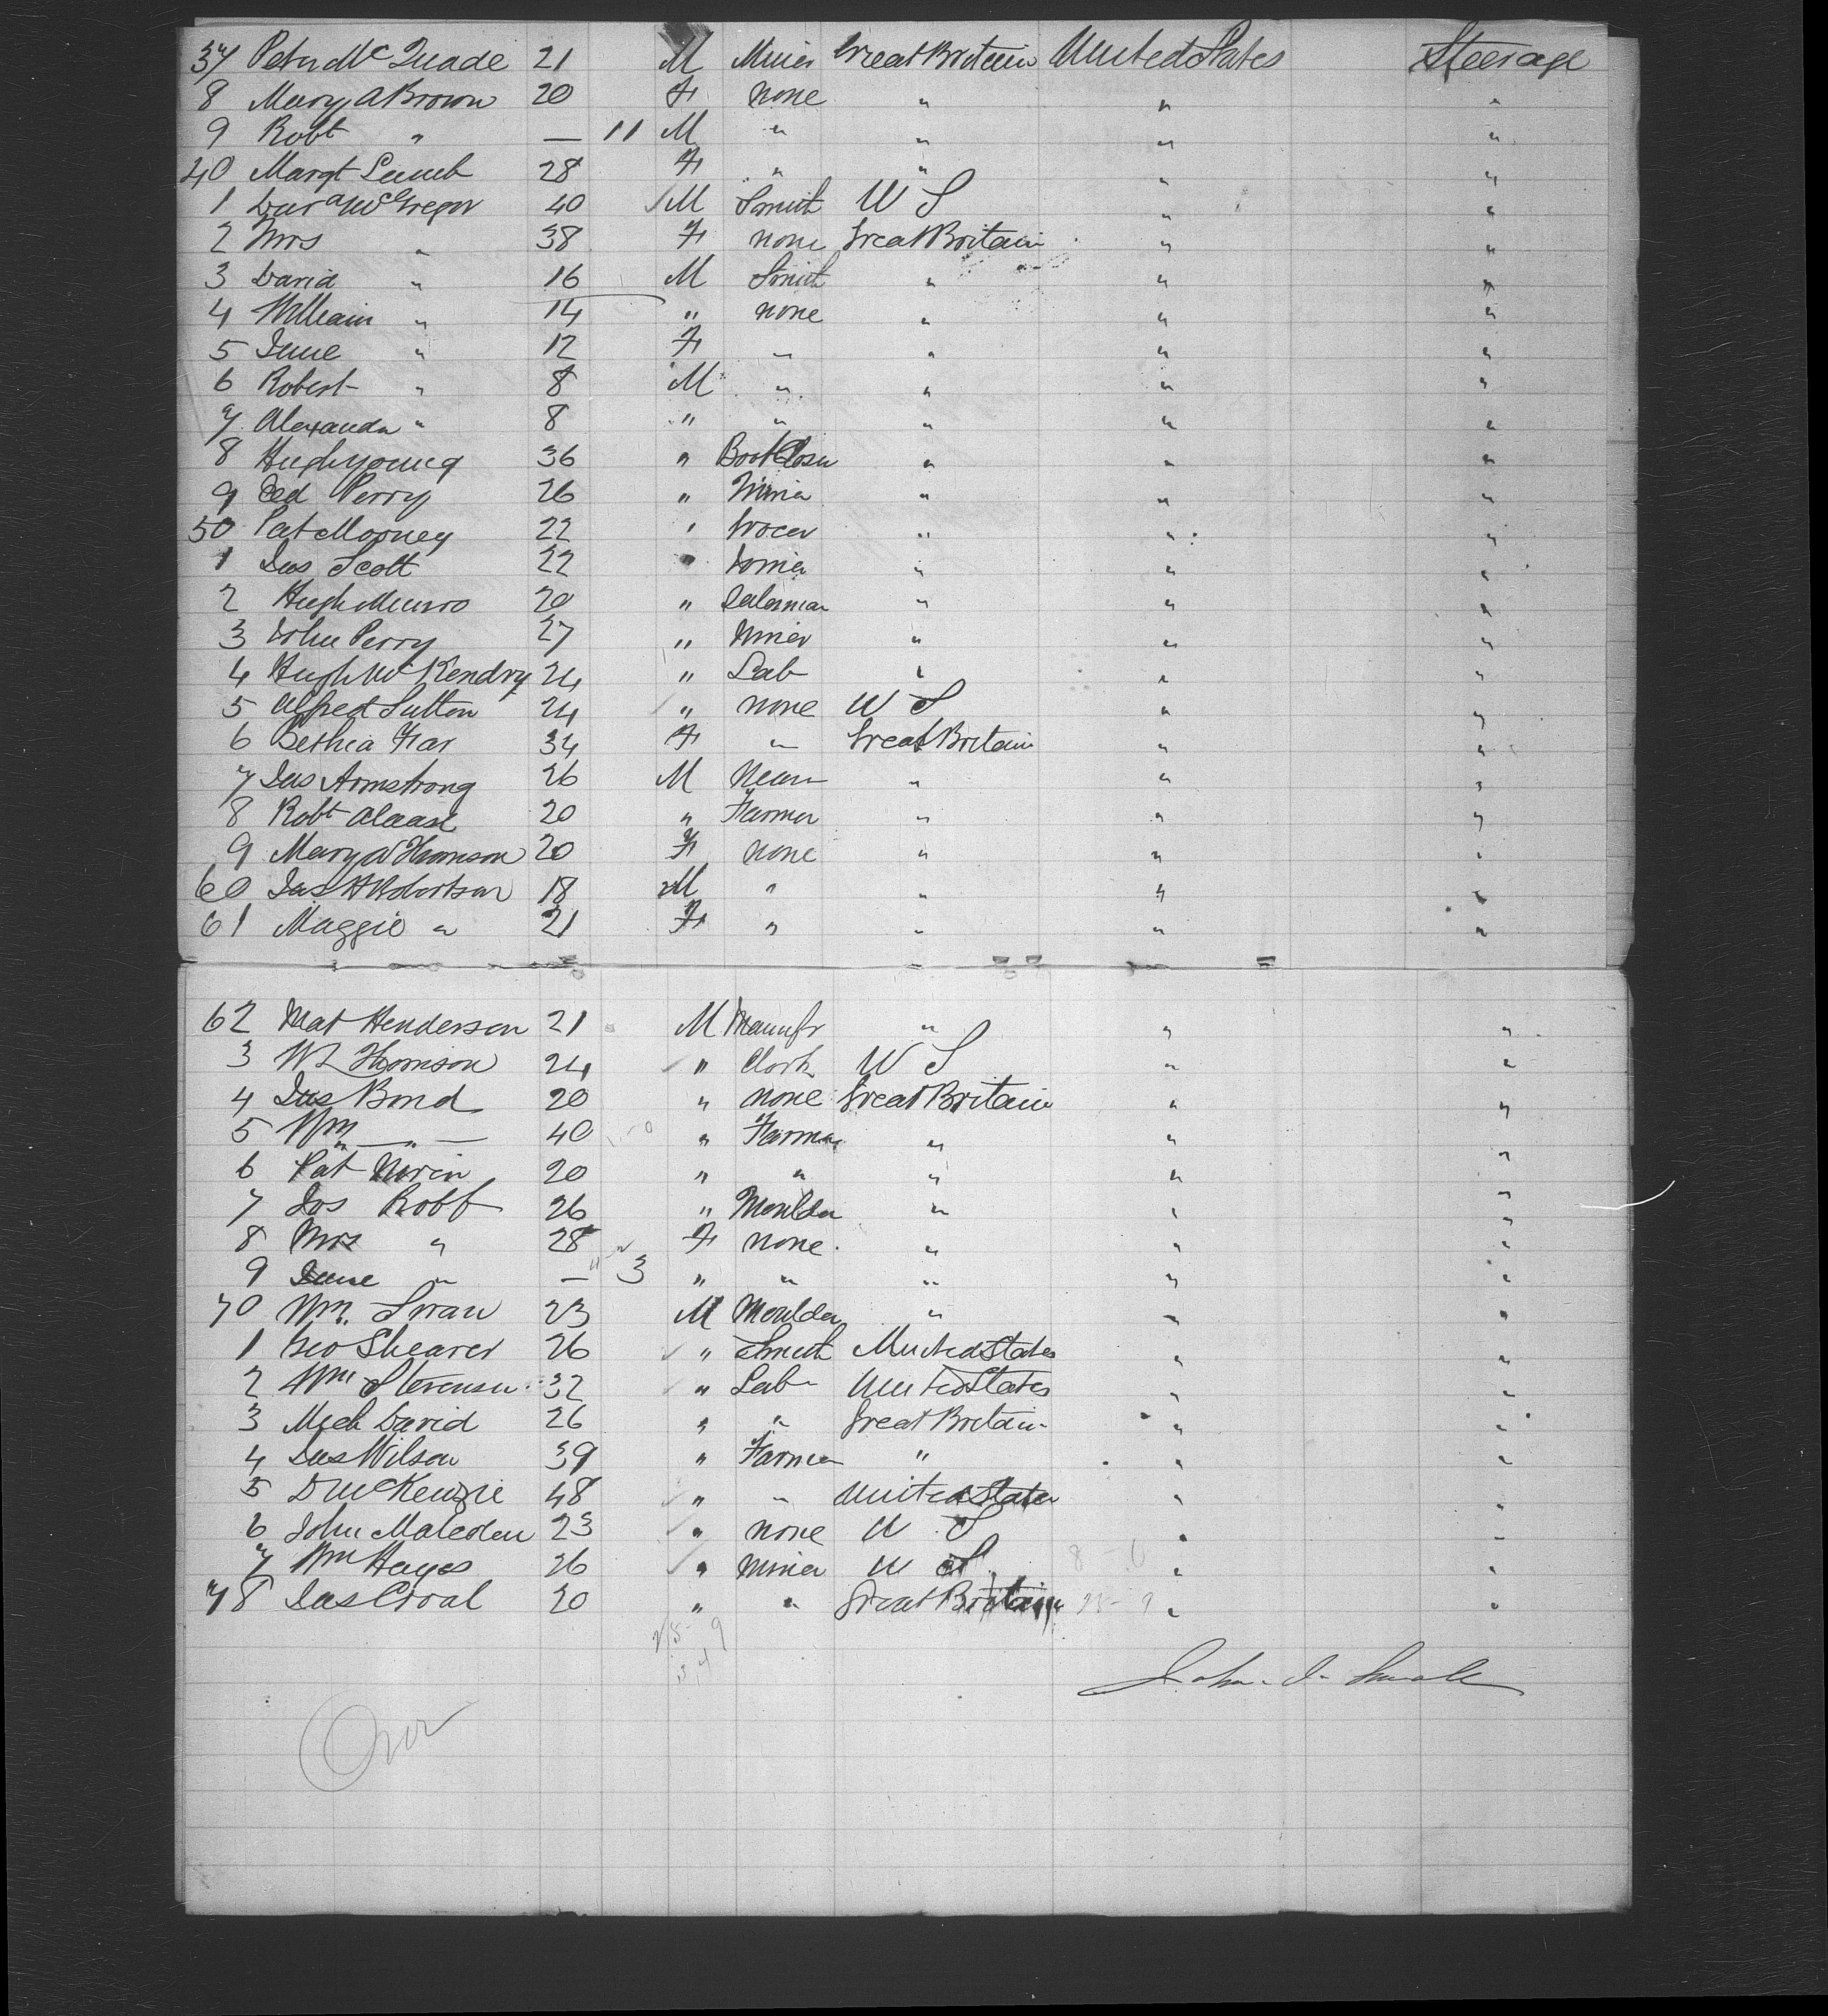 37 Peter McQuade 21 M Miner Great Britain United States Steerage
8 Mary A Brown 20 F none " " "
9 Robt " — 11 M " " " "
40 Margt Lumb 28 F " " " "
1 McGregor 40 M Smith U S " "
2 Mrs " 38 F none Great Britain " "
3 David " 16 M Smith " " "
4 William " 14 " none " " "
5 Jane " 12 F " " " "
6 Robert " 8 M " " " "
7 Alexander " 8 " " " " "
8 Hugh Young 36 " Boot Closer " " "
9 Ed Perry 26 " Miner " " "
50 Pat Mooney 22 " Grocer " " "
1 Jas Scott 22 " " " "
2 Hugh Munro 20 " Salesman " " "
3 John Perry 27 " Miner " " "
4 Hugh McKendry 24 " Lab " " "
5 Alfred Sutton 24 " none U S " "
6 Bethia Fiar 34 F " Great Britain " "
7 Jas Armstrong 26 M " " "
8 Robt 20 " Farmer " " "
9 Mary W Thomson 20 F none " " "
60 Jas H Robertson 18 M " " " "
61 Maggie " 21 F " " " "
62 Mat Henderson 21 M Manufr " " "
3 W L Thomson 24 " Clerk U S " "
4 Jas Bond 20 " none Great Britain " "
5 Wm — " — 40 " Farmer " " "
6 Pat 20 " " " " "
7 Jos Robb 26 " Moulder " " "
8 Mrs " 28 F none " " "
9 Jane " — 3 " " " " "
70 Wm. Swan 23 M Moulder " " "
1 Geo Shearer 26 " Smith United States " "
2 Wm Stevenson 32 " Lab United States " "
3 Mich David 26 " " Great Britain " "
4 Jas Wilson 39 " Farmer " " "
5 D McKenzie 48 " " United States " "
6 John 23 " none U S " "
7 Wm Hayes 26 " Miner U S " "
78 Jas 20 " " Great Britain " "
Over